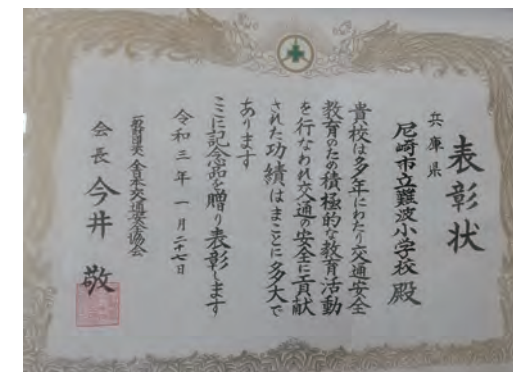 表彰状
兵庫県
尼崎市立難波小学校 殿
貴校は多年にわたり交通安全
教育のための積極的な教育活動
を行なわれ交通の安全に貢献
された功績はまことに多大で
あります
ここに記念品を贈り表彰します
令和三年一月二十七日
一般財団法人 全日本交通安全協会
会長 今井 敬